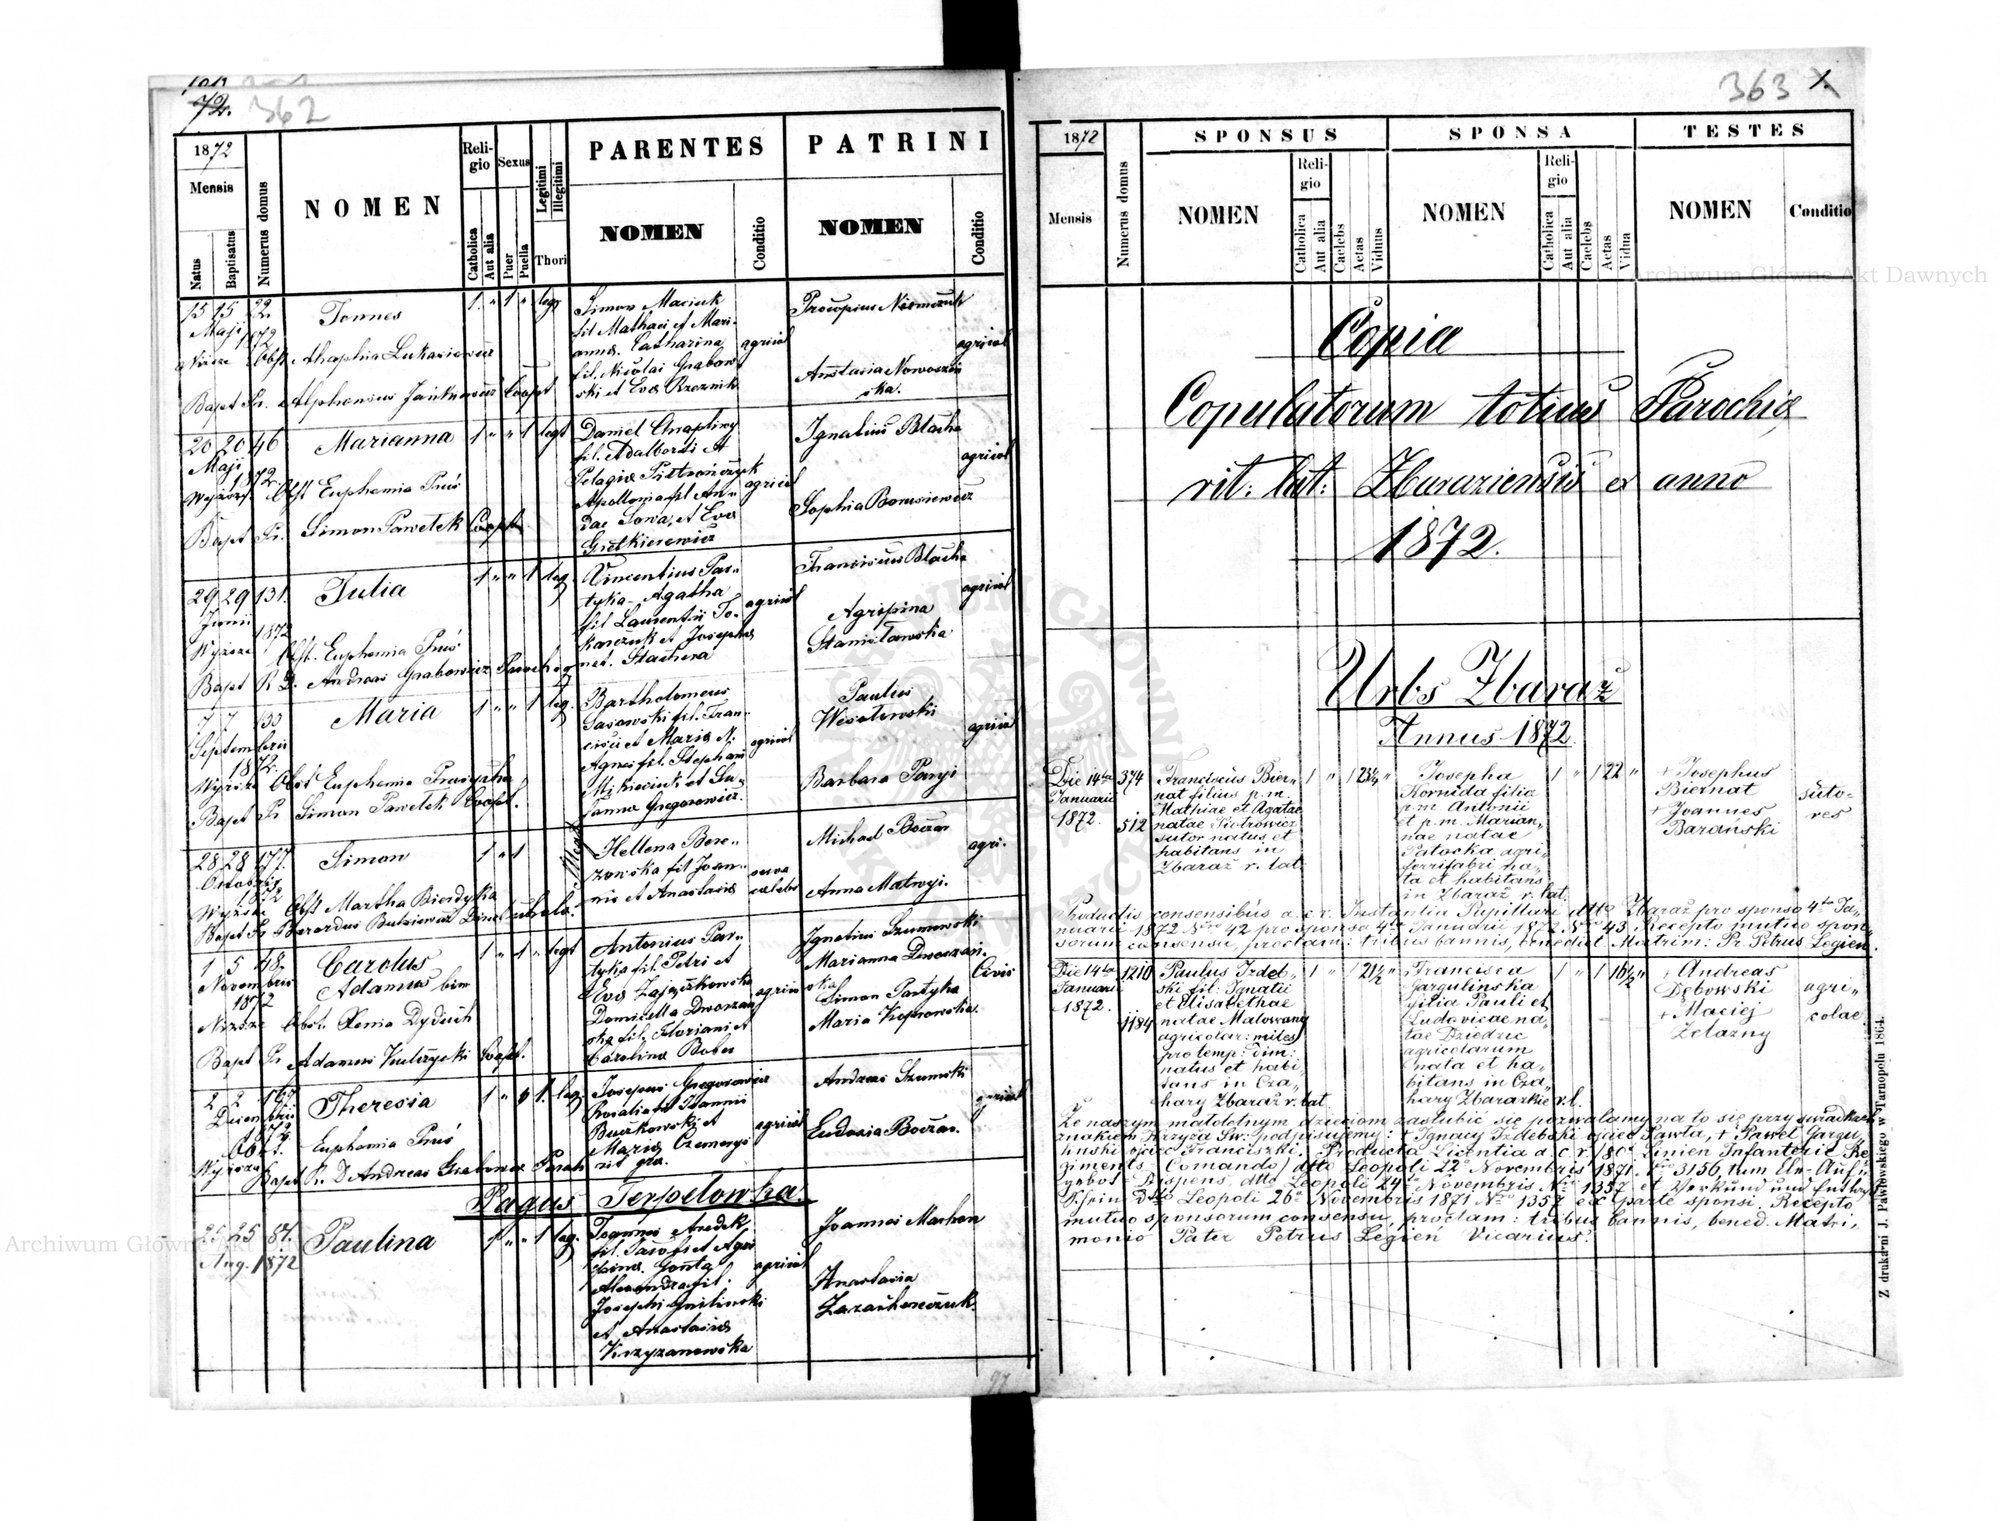 72. 362
1872
Mensis
Natus
Baptisatus
Numerus domus
NOMEN
Religio
Catholica
Aut alia
Sexus
Puer
Puella
Legitimi
Illegitimi
Thori
PARENTES
NOMEN
Conditio
PATRINI
NOMEN
Conditio
15 15 22. Joannes 1. " 1 " leg.
Maji 1872
Obst. Lukasiewicz
Bapt. Pr. Alphonsus Jankiewicz Coopt
Simon Maciuk
fil Mathaei et Mari-
anna. Catharina
fil. Nicolai Grabow-
ski et Eva Rzeznik
agricol
Procopius Niemczuk
Anstasia Nowosiel
ska.
agricol
20 20 46 Marianna 1 " " 1 legt
Maji 1872.
Obst Euphemia Pruś
Bapt Pr. Simon Pawełek Coopt
Daniel Chaplicy
fil. Adalberti et
Pelagia Pietrończyk
Apollonia fil An-
drae Sowa, et Eva
agricol
Ignatius Blacha
Sophia Borusiewicz
agricol
29 29 131. Julia 1 " " 1 leg.
Junii 1872
Obst. Euphemia Pruś
Bapt R. D. Andreas Grabowicz Paroch
Vincentius Par-
tyka - Agatha
fil Laurentii To-
karczuk et Josepha
nat. Stachera
agricol
Franciscus Blacha
Agripina
Stanisławska
agricol
7 7 130 Maria 1 " " 1 leg.
Septembris
1872.
Obst Euphemia
Bapt Pr Simon Pawełek Coopt.
Bartholomeus
Sasowski fil. Fran-
cisci et Maria N.
Agnes fil. Stephani
et Su-
sanna Gregorowicz.
agricol
Paulus
Wesołowski
Barbara Panyi
agricol
28 28 177. Simon 1 " 1
Octobris 1872
Obst Martha Bierdyka
Hellena Bere-
zowska fil Joan-
nis et Anastasia
Michael Boczar
Anna Matwyi.
agri.
1 5 48. Carolus 1 " 1 " legt
Novembris Adamus bin
1872
Obst. Xenia Dyduch
Bapt Pr Adamus Kulczycki Coopt.
Antonius Par-
tyka fil. Petri et
Eva Zajączkowska
Domicella Dworzań
ska fil. Floriani et
Carolina Bober
agricol
Ignatius Szumowski
Marianna Dworzań-
ska
Simon Partyka
Maria Kopnowska.
Civis
2 2 169 Theresia 1 " " 1. leg.
Decembris
1872.
Obst. Euphemia Pruś
Bapt R. D Andreas Grabowicz Paroh
Josephus Gregorowicz
Rosalia fil Joannis
Buczkowski et
Maria Czemerys
rit gra.
agricol
Andreas Szumski
Eudoxia Boczar.
agricol
Pagus Terpelowka.
25 25 87. Paulina 1 " " 1 leg.
Aug. 1872
Alexandra fil.
Josephi
et Anastasia
Krzyzanowska
agricol
Joannes Machon
Anastasia
Zazachenczuk.
97
363 1.
1872
Mensis
Numerus domus
SPONSUS
NOMEN
Religio
Catholica
Aut alia
Caelebs
Aetas
Viduus
SPONSA
NOMEN
Religio
Catholica
Aut alia
Caelebs
Aetas
Vidua
TESTES
NOMEN
Conditio
Copia
Copulatorum totius Parochiæ
rit: lat: Zbaraziensis ex anno
1872.
Urbs Zbaraž
Annus 1872.
Die 14ta
Januarii
1872.
374
512
Franciscus Bier-
nat filius p.m.
Mathiae et Agatae
natae Piotrowicz
sutor natus, et
habitans in
Zbaraž r. lat.
1 " 1 23½ "
Josepha
Kornida filia
p.m Antonii
et p.m. Marian-
nae natae
Patocka agri-
ferrifabri na-
ta et habitans
in Zbaraž r. lat.
1 " 1 22 "
+ Josephus
Biernat
+ Joannes
Barański
suto-
res
Productis consensibus a. c. r. Instantia Pupillari dtto Zbaraž pro sponso 4ta Ja-
nuarii 1872 Nro 42 pro sponsa 4ta Januarii 1872 Nro 43. Recepto mutuo spon-
sorum consensu, proclam: tribus bannis, benedixit Matrim: Pr. Petrus Legien.
Die 14ta
Januarii
1872.
1210
1184
Paulus Izdeb-
ski fil. Ignatii
et Elisabethae
natae Malowany
agricolar: miles
pro temp: dim:
natus et habi-
tans in Cza-
hary Zbaraž r. lat.
1 " 1 21½ "
Francisca
Gargulinska
filia Pauli et
Ludovicae na-
tae Dziedzic
agricolarum
nata et ha-
bitans in Cza-
hary Zbarazkie r. l.
1 " 1 16½ "
+ Andreas
Dębowski
+ Maciej
Żelazny
agri-
colae
Że naszym małoletnym dzieciom zaślubić się pozwalamy na to się przy świadkach
znakiem Krzyża Św: podpisujemy: + Ignacy Izdebski ojciec Pawła, + Paweł Gargu-
liński ojciec Franciszki. Producta Licentia a. c. r. 80o Linien Infanterie Re-
giments Comando, dtto Leopoli 22a Novembris 1871. Nro 3156, tum Ar-Auf-
gebot Dispens, dtto Leopoli 24ta Novembris Nro 1357 et Verkünd und Entlass
Schein dtto Leopoli 26a Novembris 1871 Nro 1357 ex parte sponsi. Recepto
mutuo sponsorum consensu, proclam: tribus bannis, bened. Matri-
monio Pater Petrus Legien Vicarius.
Z drukarni J. Pawłowskiego w Tarnopolu 1864.
Archiwum Główne Akt Dawnych
Archiwum Główne Akt Dawnych